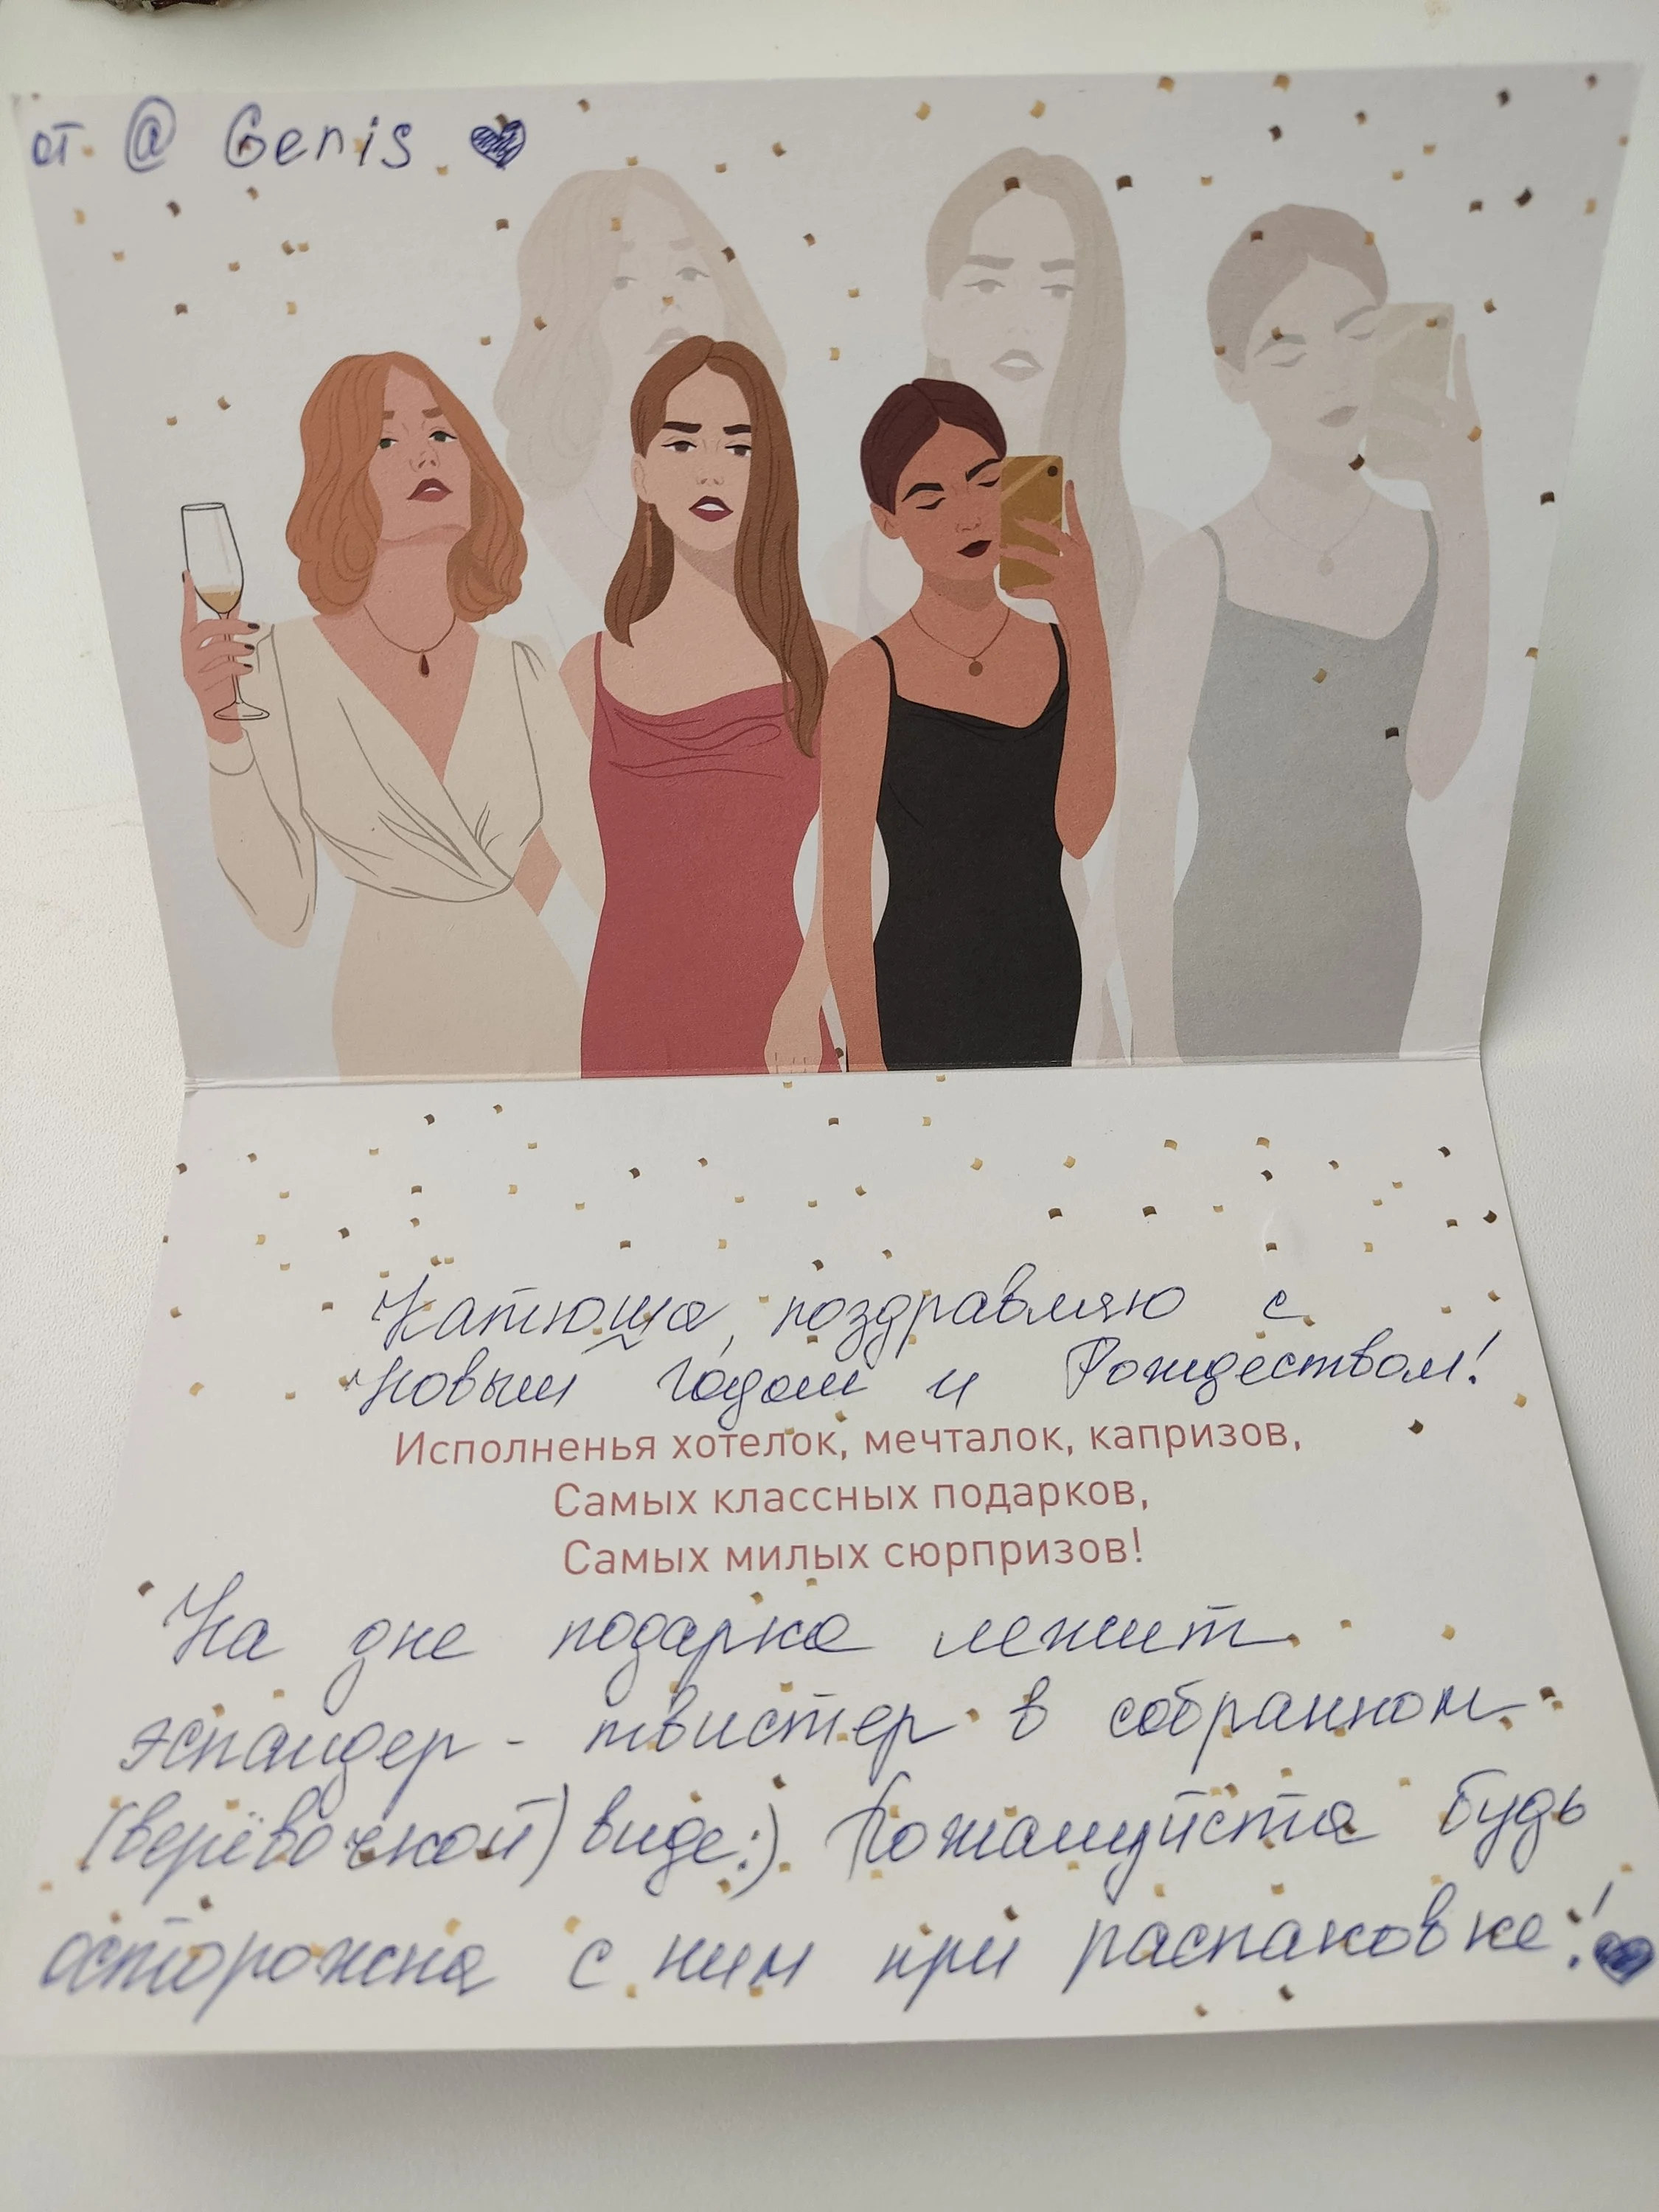 от @ Genis
Катюша, поздравляю с
Новым годом и Рождеством!
Исполненья хотелок, мечталок, капризов,
Самых классных подарков,
Самых милых сюрпризов!
На дне подарка лежит
эспандер - твистер в собранном
(верёвочкой) виде:) Пожалуйста будь
осторожна с ним при распаковке!